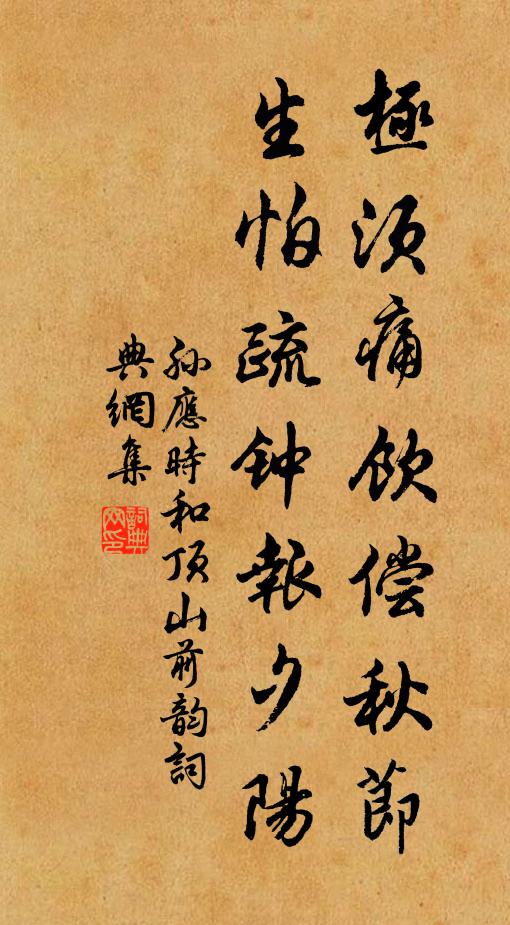 極須痛飲償秋節
生怕疏钟報夕陽
孙應時和顶山前韵詞
典網集
詞典網印